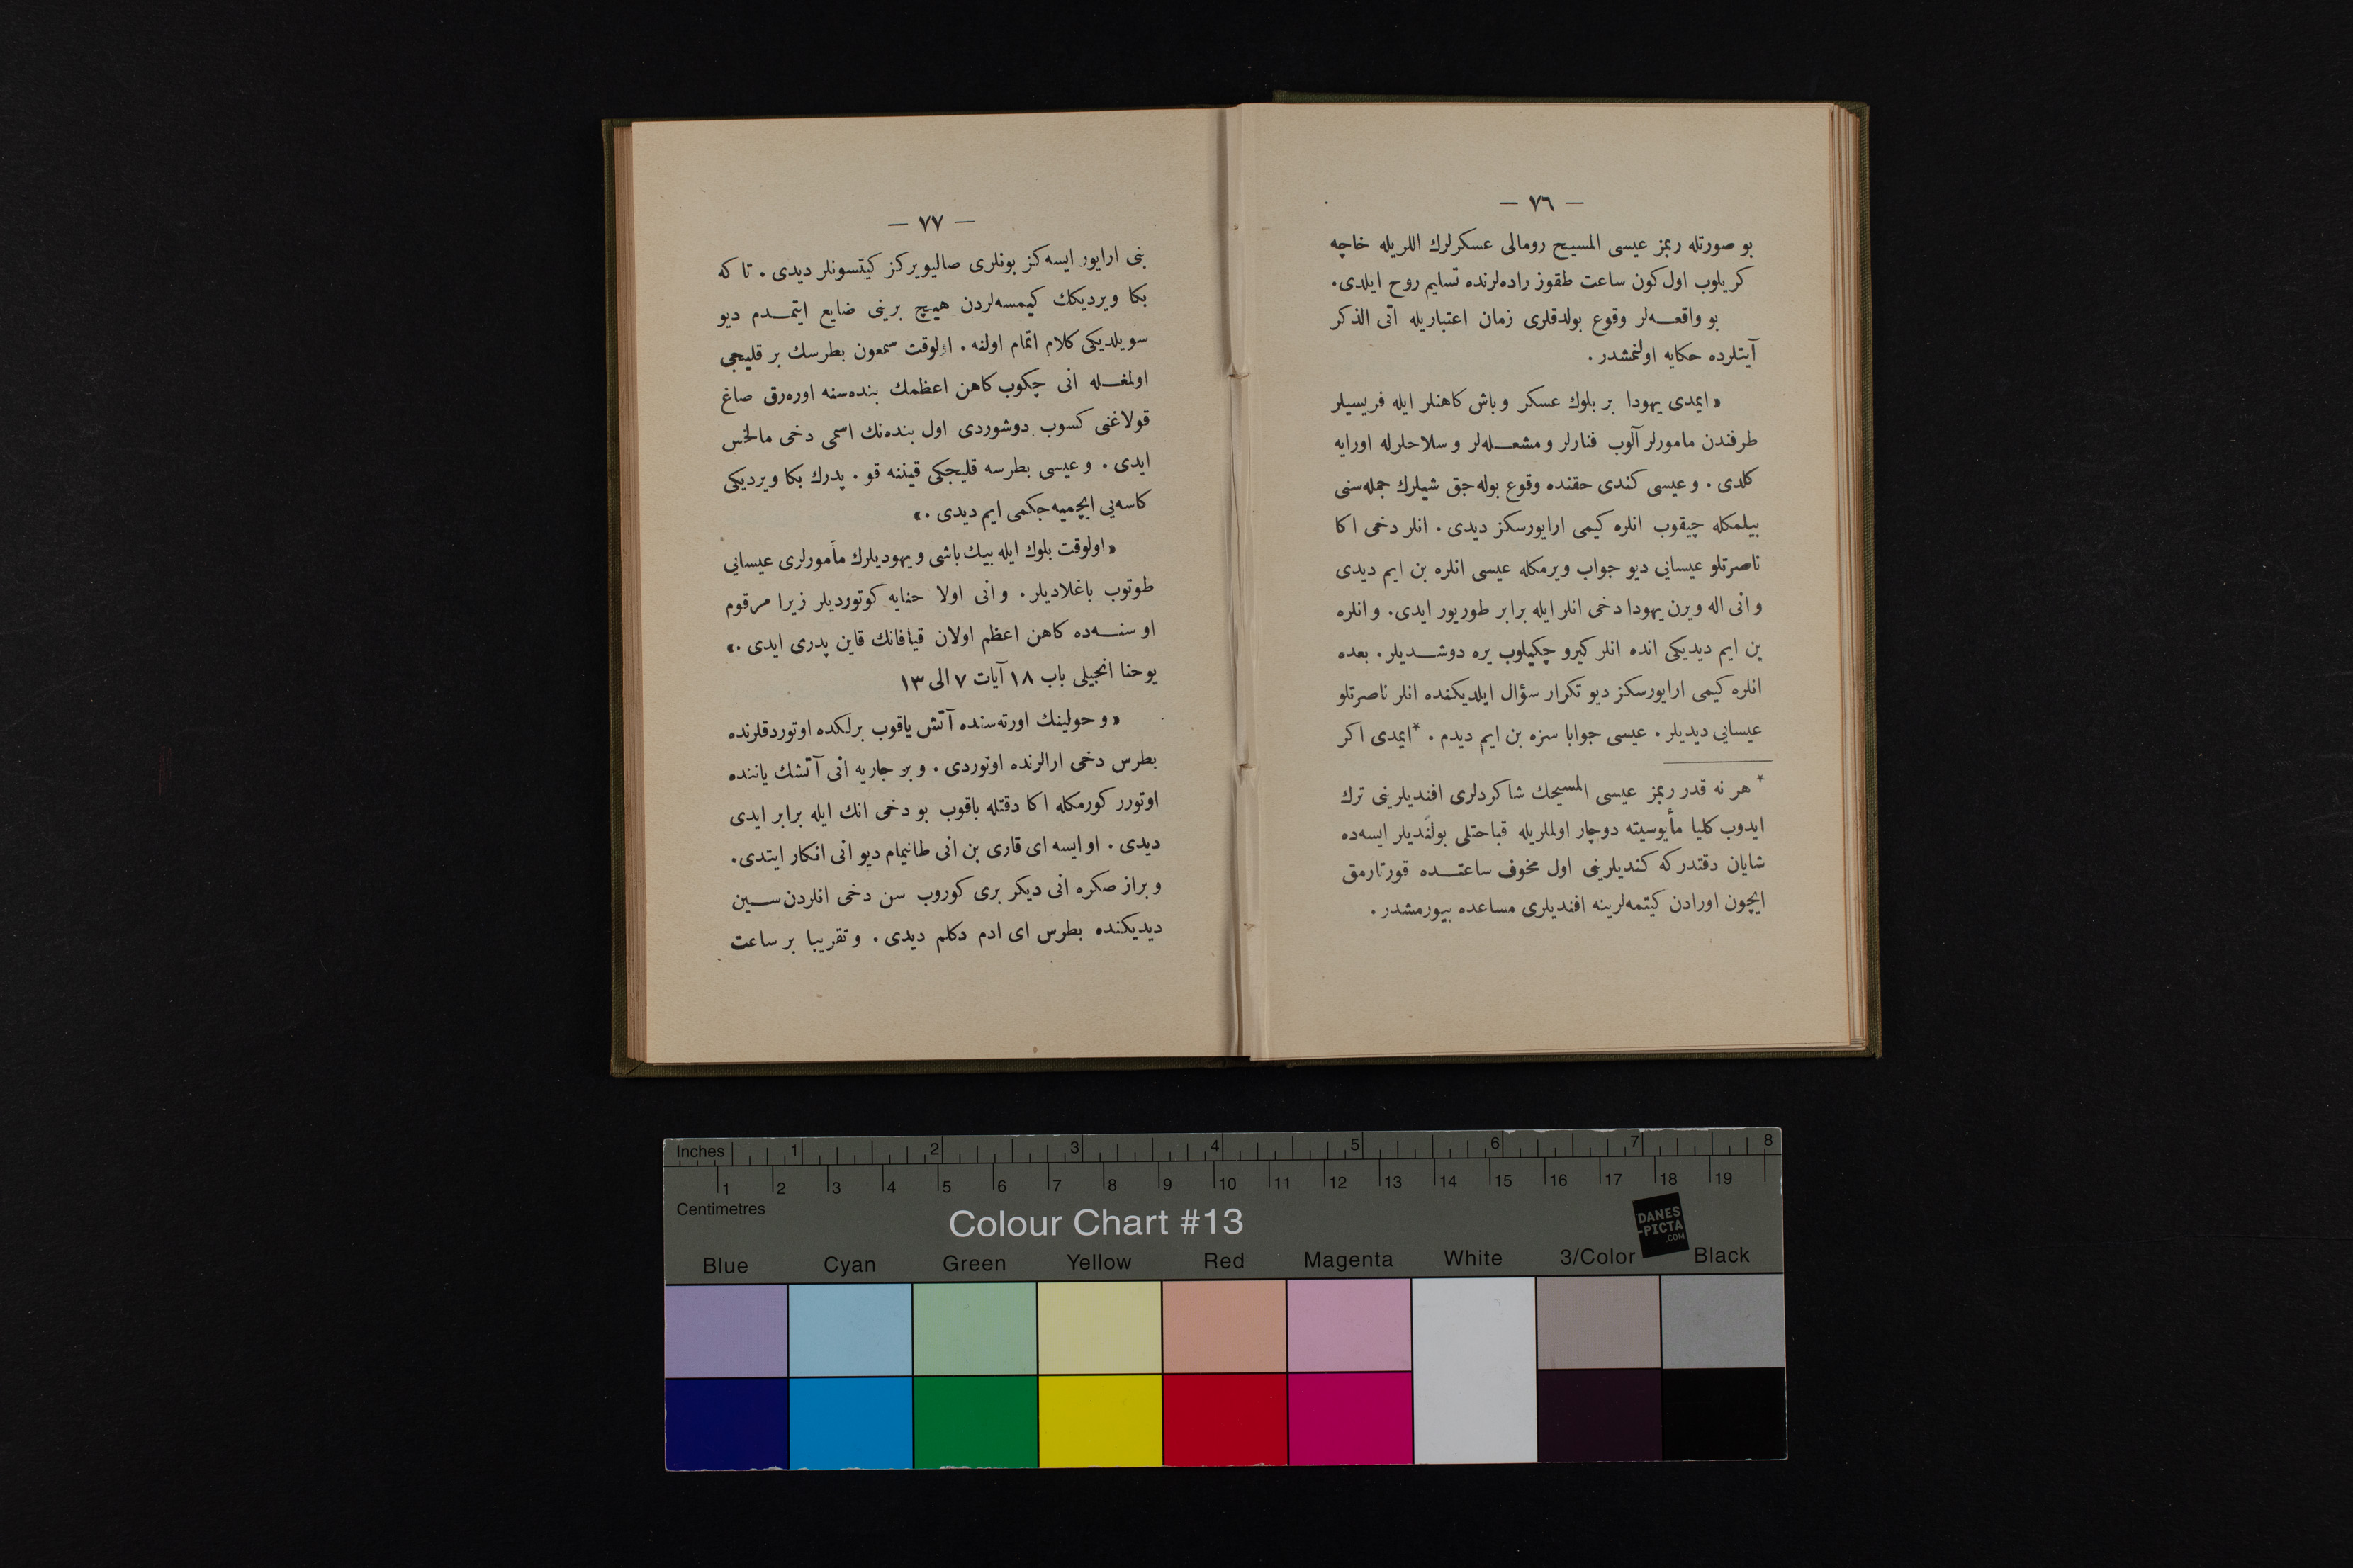 — ٧٦ —
بو صورتله ربمز عیسی المسیح رومالی عسکرلرك اللریله خاچه
کریلوب اول کون ساعت طقوز راده‌لرنده تسلیم روح ایلدی.
بو واقعه‌لر وقوع بولدقلری زمان اعتباریله اتی الذکر
آیتلرده حکایه اولنمشدر.
«ایمدی یهودا بر بلوك عسکر و باش کاهنلر ایله فریسیلر
طرفندن مامورلر آلوب فنارلر و مشعله‌لر و سلاحلرله اورایه
کلدی. و عیسی کندی حقنده وقوع بوله‌جق شیلرك جمله‌سنی
بیلمکله چیقوب انلره کیمی ارایورسکز دیدی. انلر دخی اکا
ناصرتلو عیسایی دیو جواب ویرمکله عیسی انلره بن ایم دیدی
و انی اله ویرن یهودا دخی انلر ایله برابر طوریور ایدی. و انلره
بن ایم دیدیکی انده انلر کیرو چکیلوب یره دوشدیلر. بعده
انلره کیمی ارایورسکز دیو تکرار سؤال ایلدیکنده انلر ناصرتلو
عیسایی دیدیلر. عیسی جوابا سزه بن ایم دیدم. *ایمدی اکر
* هر نه قدر ربمز عیسی المسیحك شاکردلری افندیلرینی ترك
ایدوب کلیا مأیوسیته دوچار اولملریله قباحتلی بولندیلر ایسه‌ده
شایان دقتدر که کندیلرینی اول مخوف ساعتده قورتارمق
ایچون اورادن کیتمه‌لرینه افندیلری مساعده بیورمشدر.
— ٧٧ —
بنی ارایور ایسه‌کز بونلری صالیویرکز کیتسونلر دیدی. تا که
بکا ویردیکك کیمسه‌لردن هیچ برینی ضایع ایتمدم دیو
سویلدیکی کلام اتمام اولنه. اولوقت سمعون بطرسك بر قلیجی
اولمغله انی چکوب کاهن اعظمك بنده‌سنه اوره‌رق صاغ
قولاغنی کسوب دوشوردی اول بنده‌نك اسمی دخی مالخس
ایدی. و عیسی بطرسه قلیجکی قیننه قو. پدرك بکا ویردیکی
کاسه‌یی ایچمیه‌جکمی ایم دیدی.»
«اولوقت بلوك ایله بیك باشی و یهودیلرك مأمورلری عیسایی
طوتوب باغلادیلر. و انی اولا حنایه کوتوردیلر زیرا مرقوم
او سنه‌ده کاهن اعظم اولان قیافانك قاین پدری ایدی.»
یوحنا انجیلی باب ١٨ آیات ٧ الی ١٣
«و حولینك اورته‌سنده آتش یاقوب برلکده اوتوردقلرنده
بطرس دخی ارالرنده اوتوردی. و بر جاریه انی آتشك یاننده
اوتورر کورمکله اکا دقتله باقوب بو دخی انك ایله برابر ایدی
دیدی. او ایسه ای قاری بن انی طانیمام دیو انی انکار ایتدی.
و براز صکره انی دیکر بری کوروب سن دخی انلردن سین
دیدیکنده بطرس ای ادم دکلم دیدی. و تقریبا بر ساعت
Inches 1 2 3 4 5 6 7 8
1 2 3 4 5 6 7 8 9 10 11 12 13 14 15 16 17 18 19
Centimetres
Colour Chart #13
DANES
-PICTA
.COM
Blue Cyan Green Yellow Red Magenta White 3/Color Black